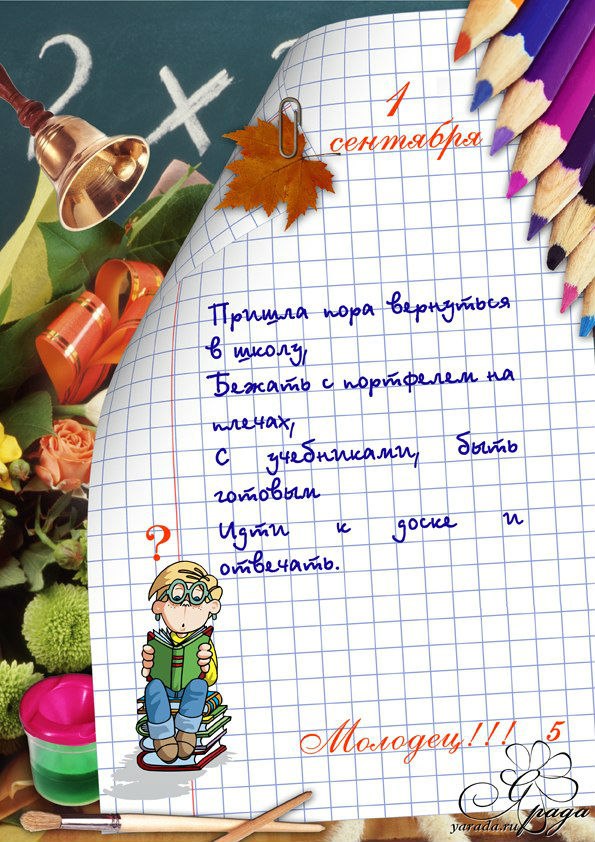 2 x
1
сентября
Пришла пора вернуться
в школу,
Бежать с портфелем на
плечах,
С учебниками, быть
готовым
Идти к доске и
отвечать.
?
Молодец!!! 5
Ярада
yarada.ru